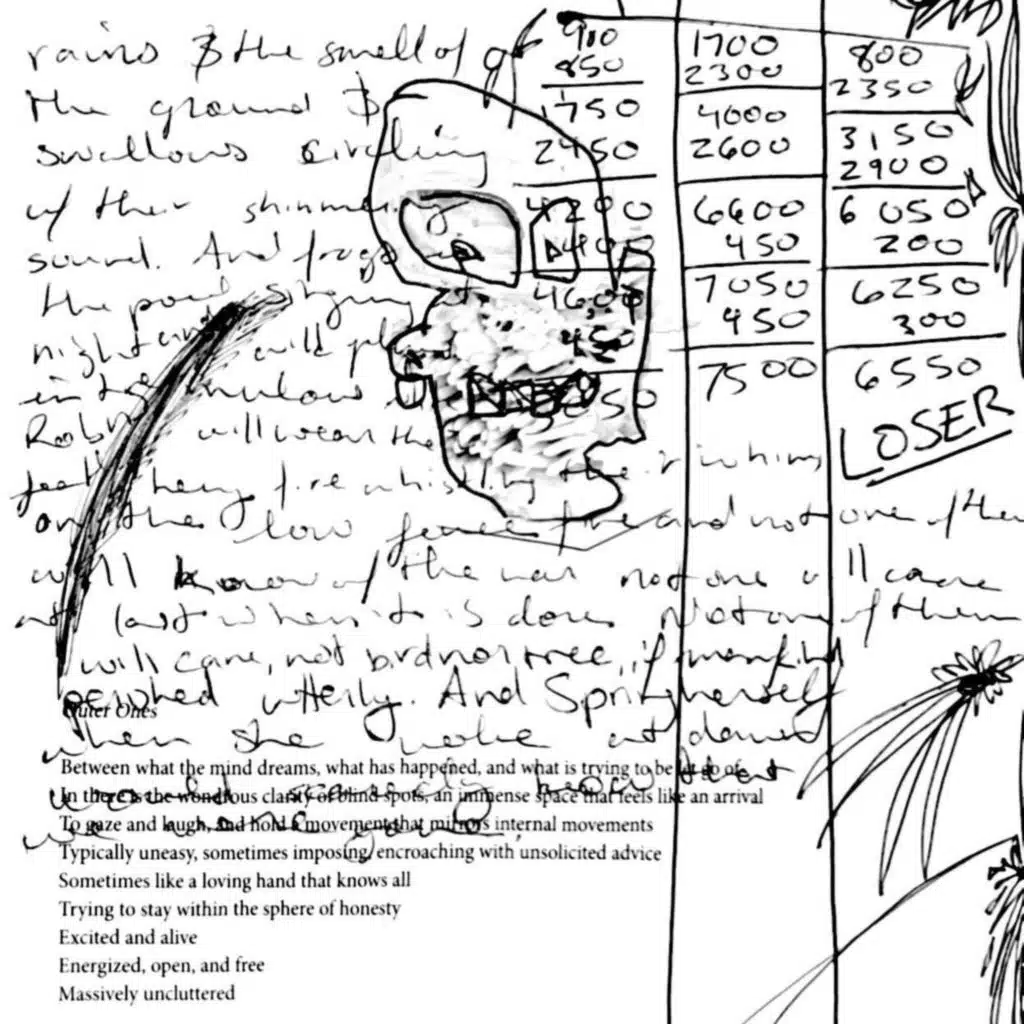 rains & the smell of
the ground &
swallows circling
w/ their shimmering
sound. And frogs in
the pool singing at
night and will
in
Robins will wear the
feathery fire whistling their whims
on the low fence fire and not one of them
will know of the war not one will care
at last when it is done Not one of them
will care, not bird nor tree, if mankind
perished utterly. And Spring herself
when she woke at dawn
would scarcely know that
we gone
900 1700 800
850 2300 2350
1750 4000 3150
2450 2600 2900
4200 6600 6050
400 450 200
4600 7050 6250
450 450 300
5050 7500 6550
LOSER
Outer Ones
Between what the mind dreams, what has happened, and what is trying to be let go of
In there is the wondrous clarity of blind spots, an immense space that feels like an arrival
To gaze and laugh, and hold a movement that mirrors internal movements
Typically uneasy, sometimes imposing, encroaching with unsolicited advice
Sometimes like a loving hand that knows all
Trying to stay within the sphere of honesty
Excited and alive
Energized, open, and free
Massively uncluttered